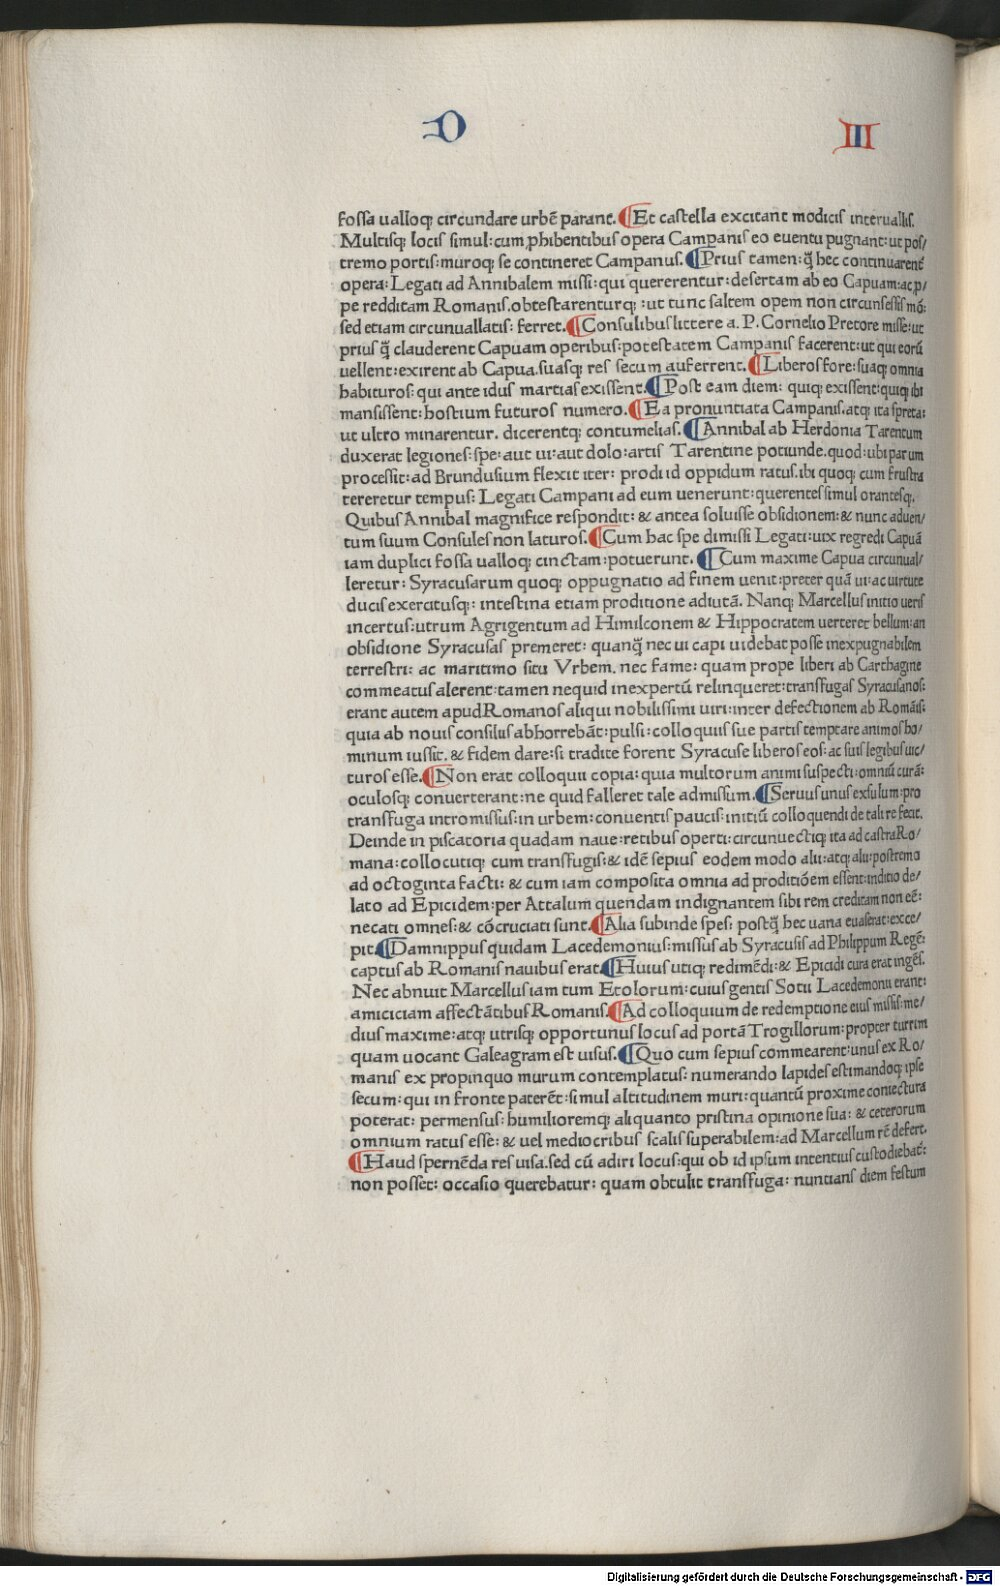 D III
fossa ualloq; circundare urbē parant. ¶Et castella excitant modicis interuallis.
Multisq; locis simul: cum ꝓhibentibus opera Campanis eo euentu pugnant: ut pos/
tremo portis: muroq; se contineret Campanus. ¶Prius tamen: q̄ hec continuarent̄
opera: Legati ad Annibalem missi: qui quererentur: desertam ab eo Capuam: ac ꝓ/
pe redditam Romanis. obtestarenturq; : ut tunc saltem opem non circunsessis mō:
sed etiam circunuallatis: ferret. ¶Consulibus littere a. P. Cornelio Pretore misse: ut
prius q̄ clauderent Capuam operibus: potestatem Campanis facerent: ut qui eorū
uellent: exirent ab Capua. suasq; res secum auferrent. ¶Liberos fore: suaq; omnia
habituros: qui ante idus martias exissent. ¶Post eam diem: quiq; exissent: quiq; ibi
mansissent: hostium futuros numero. ¶Ea pronuntiata Campanis. atq; ita spreta:
ut ultro minarentur. dicerentq; contumelias. ¶Annibal ab Herdonia Tarentum
duxerat legiones: spe: aut ui: aut dolo: artis Tarentine potiunde. quod: ubi parum
processit: ad Brundusium flexit iter: prodi id oppidum ratus. ibi quoq; cum frustra
tereretur tempus: Legati Campani ad eum uenerunt: querentes simul orantesq;.
Quibus Annibal magnifice respondit: & antea soluisse obsidionem: & nunc aduen/
tum suum Consules non laturos. ¶Cum hac spe dimissi Legati: uix regredi Capuā
iam duplici fossa ualloq; cinctam: potuerunt. ¶Cum maxime Capua circunual/
leretur: Syracusarum quoq; oppugnatio ad finem uenit: preter quā ui: ac uirtute
ducis exercitusq; : intestina etiam proditione adiutā. Nanq; Marcellus initio ueris
incertus: utrum Agrigentum ad Himilconem & Hippocratem uerteret bellum: an
obsidione Syracusas premeret: quanq̄ nec ui capi uidebat posse inexpugnabilem
terrestri: ac maritimo situ Vrbem. nec fame: quam prope liberi ab Carthagine
commeatus alerent: tamen nequid inexpertū relinqueret: transfugas Syracusanos:
erant autem apud Romanos aliqui nobilissimi uiri: inter defectionem ab Romāis:
quia ab nouis consiliis abhorrebāt: pulsi: colloquiis sue partis temptare animos ho/
minum iussit. & fidem dare: si tradite forent Syracuse liberos eos: ac suis legibus uic/
turos esse. ¶Non erat colloquii copia: quia multorum animi suspecti: omniū curā:
oculosq; conuerterant: ne quid falleret tale admissum. ¶Seruus unus exsulum: pro
transfuga intromissus: in urbem: conuentis paucis: initiū colloquendi de tali re fecit.
Deinde in piscatoria quadam naue: retibus operti: circunuectiq; ita ad castra Ro/
mana: collocutiq; cum transfugis: & idē sepius eodem modo alii: atq; alii: postremo
ad octoginta facti: & cum iam composita omnia ad proditiōem essent: inditio de/
lato ad Epicidem: per Attalum quendam indignantem sibi rem creditam non eē:
necati omnes: & cōcruciati sunt. ¶Alia subinde spes: postq̄ hec uana euaserat: exce/
pit. ¶Damnippus quidam Lacedemonius: missus ab Syracusis ad Philippum Regē:
captus ab Romanis nauibus erat. ¶Huius utiq; redimēdi: & Epicidi cura erat ingēs.
Nec abnuit Marcellus iam tum Etolorum: cuius gentis Sotii Lacedemonii erant:
amicitiam affectātibus Romanis. ¶Ad colloquium de redemptione eius missis: me/
dius maxime: atq; utrisq; opportunus locus ad portā Trogillorum: propter turrim
quam uocant Galeagram est uisus. ¶Quo cum sepius commearent: unus ex Ro/
manis ex propinquo murum contemplatus: numerando lapides estimandoq; ipse
secum: qui in fronte paterēt: simul altitudinem muri: quantū proxime coniectura
poterat: permensus: humilioremq; aliquanto pristina opinione sua: & ceterorum
omnium ratus esse: & uel mediocribus scalis superabilem: ad Marcellum rē defert.
¶Haud spernēda res uisa. sed cū adiri locus: qui ob id ipsum intentius custodiebat̄:
non posset: occasio querebatur: quam obtulit transfuga: nuntians diem festum
Digitalisierung gefördert durch die Deutsche Forschungsgemeinschaft - DFG